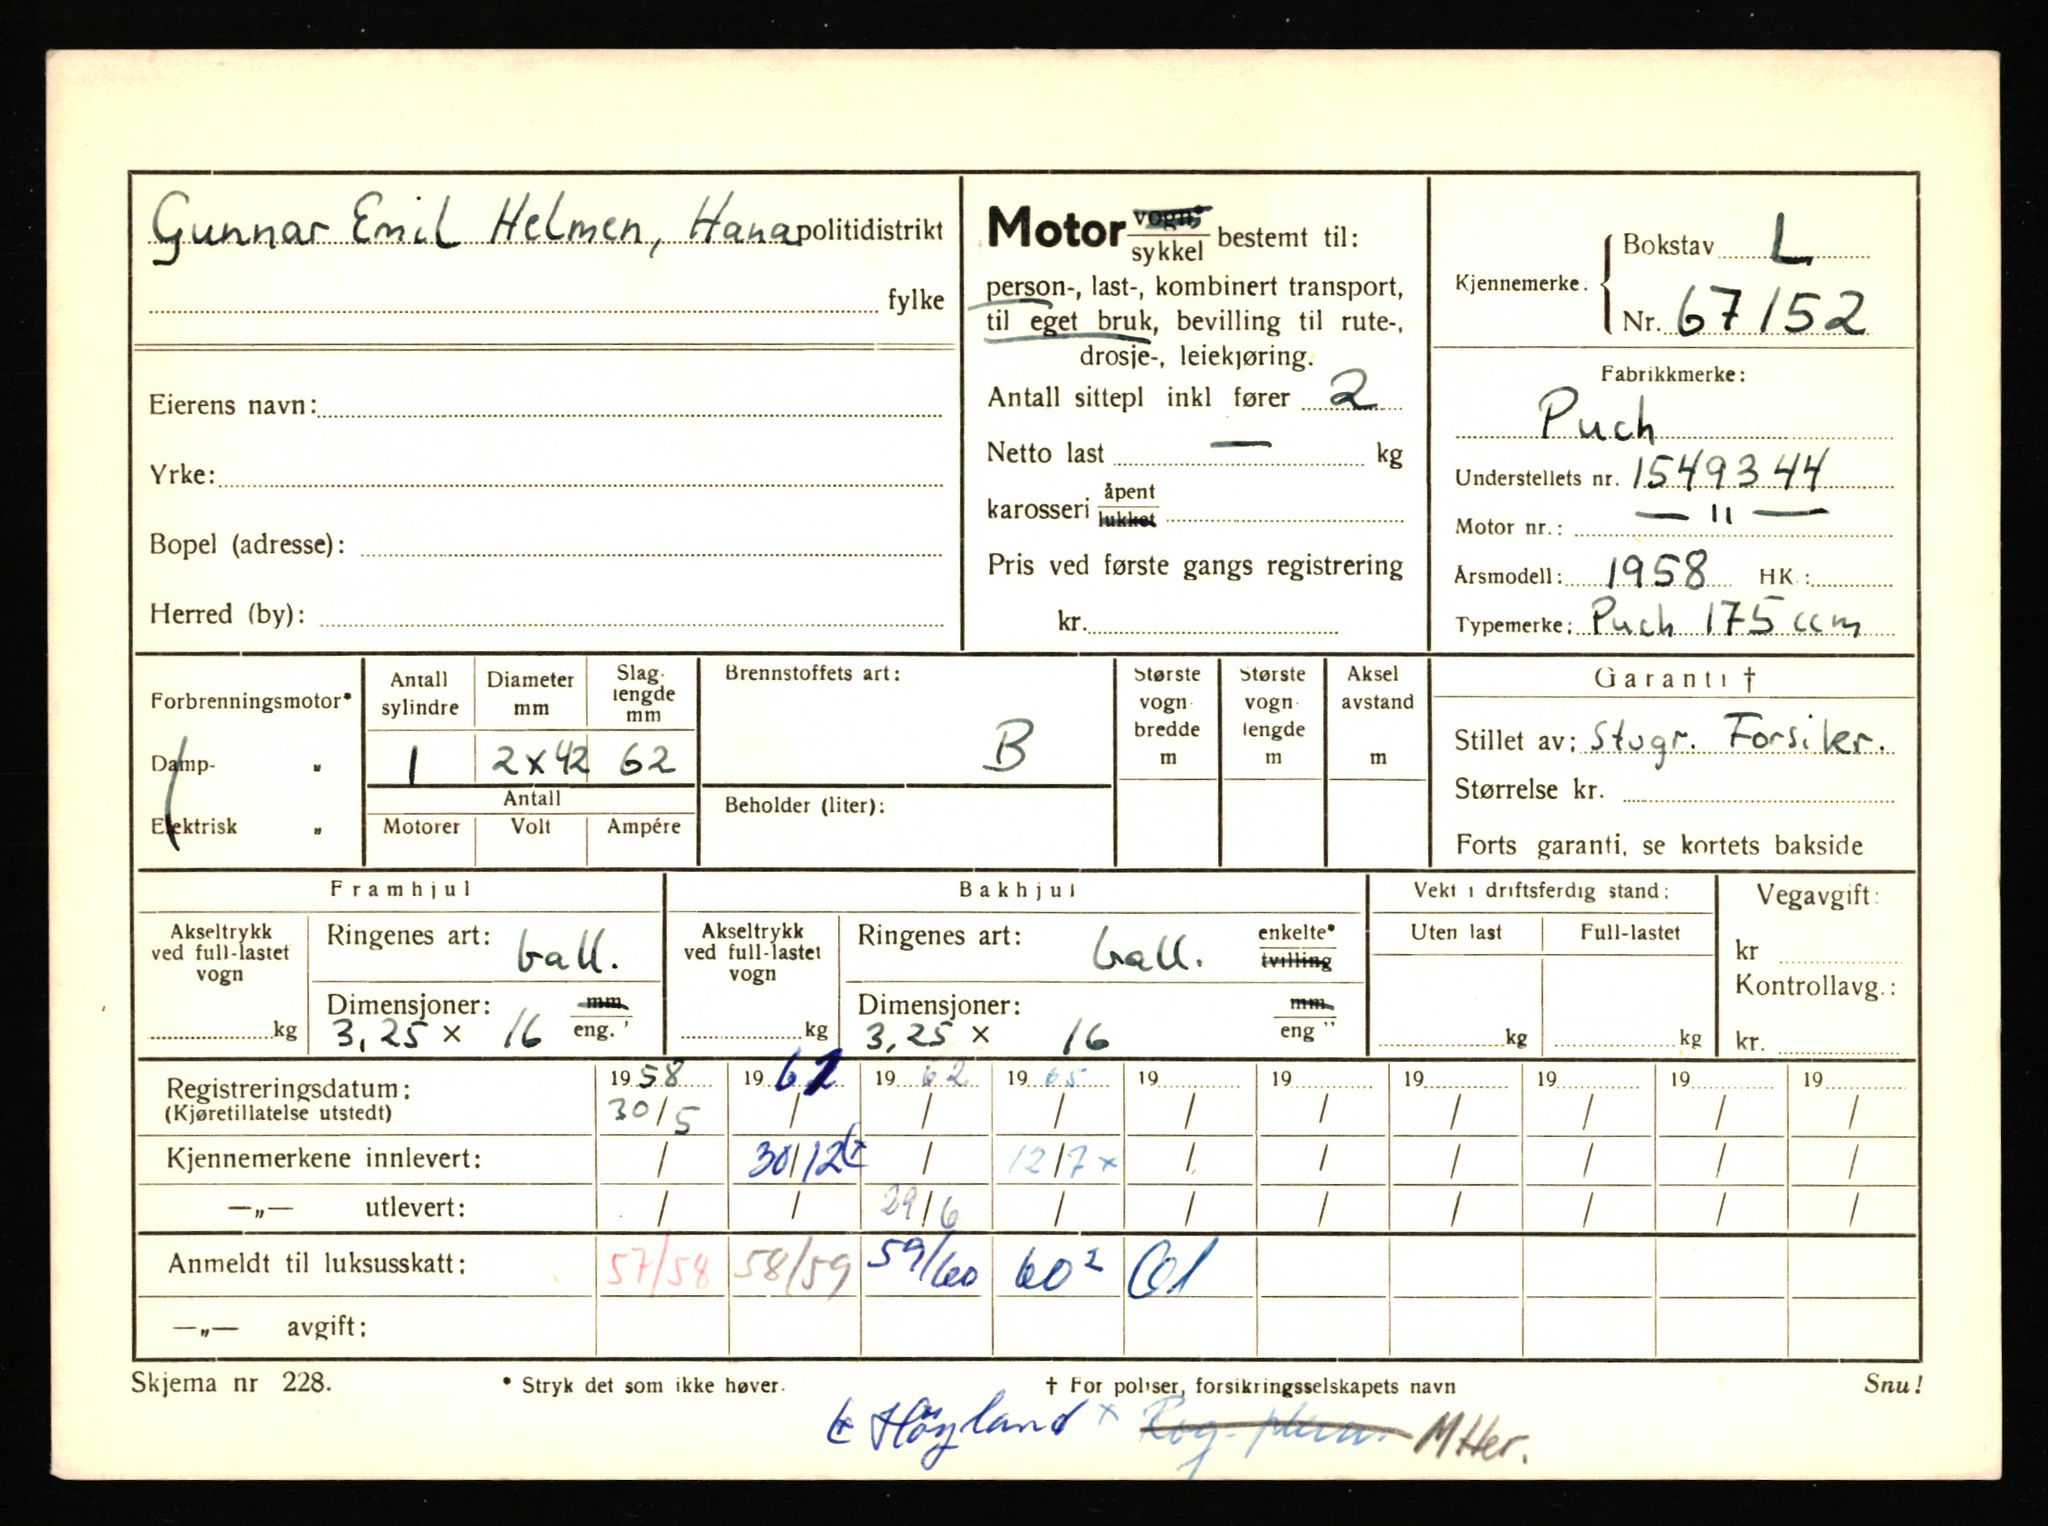 Gunnar Emil Helmen, Hana politidistrikt
fylke
Eierens navn:
Yrke:
Bopel (adresse):
Herred (by):
Motor vogn* / sykkel bestemt til:
person-, last-, kombinert transport,
til eget bruk, bevilling til rute-,
drosje-, leiekjøring.
Antall sittepl inkl fører 2
Netto last — kg
karosseri åpent / lukket
Pris ved første gangs registrering
kr.
Kjennemerke.
Bokstav L
Nr. 67152
Fabrikkmerke:
Puch
Understellets nr. 1549344
Motor nr.: — 11 —
Årsmodell: 1958 HK:
Typemerke: Puch 175 ccm
Forbrenningsmotor*
Damp- „
Elektrisk „
Antall sylindre
1
Diameter mm
2x42
Slag-lengde mm
62
Antall
Motorer Volt Ampére
Brennstoffets art:
B
Beholder (liter):
Største vogn-bredde m
Største vogn-lengde m
Aksel avstand m
Garanti †
Stillet av: Stvgr. Forsikr.
Størrelse kr.
Forts garanti, se kortets bakside
Framhjul
Akseltrykk ved full-lastet vogn
kg
Ringenes art: ball.
Dimensjoner: mm / eng."
3,25 x 16
Bakhjul
Akseltrykk ved full-lastet vogn
kg
Ringenes art: ball. enkelte* / tvilling
Dimensjoner: mm / eng"
3,25 x 16
Vekt i driftsferdig stand:
Uten last Full-lastet
kg kg
Vegavgift:
kr
Kontrollavg.:
kr.
Registreringsdatum: 1958 1962 1962 1965 19 19 19 19 19 19
(Kjøretillatelse utstedt) 30/5 / / / / / / / / /
Kjennemerkene innlevert: / 30/12 / 12/7 x / / / / / /
—„— utlevert: / / 29/6 / / / / / / /
Anmeldt til luksusskatt: 57/58 58/59 59/60 60² 61
—„— avgift:
Skjema nr 228. * Stryk det som ikke høver. † For poliser, forsikringsselskapets navn Snu!
Höyland x